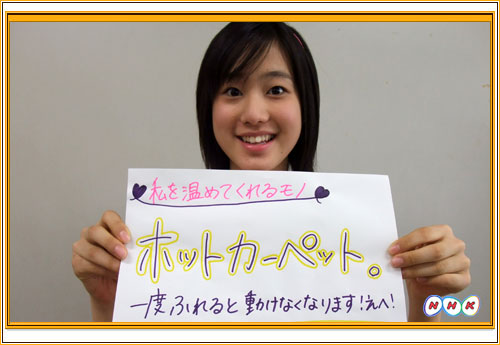 私を温めてくれるモノ
ホットカーペット。
一度ふれると動けなくなります！えへ！
NHK